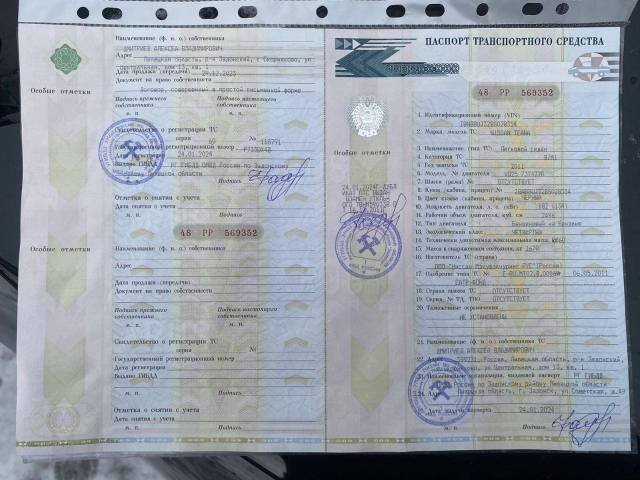 Наименование (ф. и. о.) собственника
ДМИТРИЕВ АЛЕКСЕЙ ВЛАДИМИРОВИЧ
Адрес Липецкая область, р-н Задонский, с
Центральная, дом 13, кв. 1
Дата продажи (передачи) 24.12.2023
Документ на право собственности
Договор, совершенный в простой письменной форме
Особые отметки
Подпись прежнего собственника
Подпись настоящего собственника
М. П.
М. П.
Свидетельство о регистрации ТС
серия № 118791
Государственный регистрационный номер
Дата регистрации 24.01.2024
Выдано ГИБДД РГ ГИБДД ОМВД России по Задонскому
Липецкой области
М. П.
Подпись
Отметка о снятии с учета
Дата снятия с учета
48 РР 569352
Особые отметки
Наименование (ф. и. о.) собственника
Адрес
Дата продажи (передачи)
Документ на право собственности
Подпись прежнего собственника
Подпись настоящего собственника
М. П.
М. П.
Свидетельство о регистрации ТС
серия №
Государственный регистрационный номер
Дата регистрации
Выдано ГИБДД
М. П.
Подпись
Отметка о снятии с учета
Дата снятия с учета
М. П.
Подпись
ПАСПОРТ ТРАНСПОРТНОГО СРЕДСТВА
48 РР 569352
1. Идентификационный номер (VIN)
2. Марка, модель ТС NISSAN TEANA
3. Наименование (тип ТС) Легковой седан
4. Категория ТС В/М1
5. Год выпуска ТС 2011
6. Модель, № двигателя
7. Шасси (рама) № ОТСУТСТВУЕТ
8. Кузов (кабина, прицеп) №
9. Цвет кузова (кабины, прицепа) ЧЕРНЫЙ
10. Мощность двигателя, л. с. (кВт) 182 (134)
11. Рабочий объем двигателя, куб. см 2496
12. Тип двигателя Бензиновый на бензине
13. Экологический класс ЧЕТВЕРТЫЙ
14. Технически допустимая максимальная масса, кг
15. Масса в снаряженном состоянии, кг
16. Изготовитель ТС (страна)
ООО "Ниссан Мэнуфэкчуринг РУС" (Россия)
17. Одобрение типа ТС № 06.05.2011
САТР-ФОНД
18. Страна вывоза ТС ОТСУТСТВУЕТ
19. Серия, № ТД, ТПО ОТСУТСТВУЕТ
20. Таможенные ограничения
НЕ УСТАНОВЛЕНЫ
21. Наименование (ф. и. о.) собственника ТС
ДМИТРИЕВ АЛЕКСЕЙ ВЛАДИМИРОВИЧ
22. Адрес Россия, Липецкая область, р-н Задонский,
ул Центральная, дом 13, кв. 1
23. Наименование организации, выдавшей паспорт РГ ГИБДД
России по Задонскому району Липецкой области
24. Адрес Липецкая область, г. Задонск, ул. Советская, д.
25. Дата выдачи паспорта 24.01.2024
М. П.
Подпись
Особые отметки
24.01.2024Г ДУБЛ